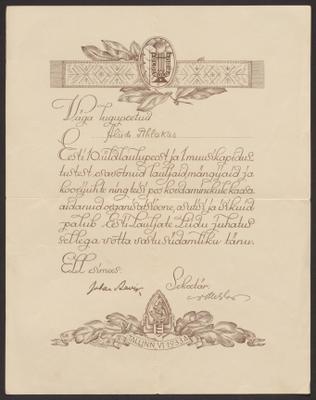 Väga lugupeetud
Eesti 10. üldlaulupeost ja 1. muusikapidus-
tustest osavõtnud lauljaid, mängijaid ja
koorijuhte ning tuisi peo kordaminekule kaasa
aidanud organisatsioone, asutisi ja isikuid
palub Eesti Lauljate Liidu juhatus
sellega võtta vastu südamliku tänu.
ELL esimees: Sekretär:
TALLINN VI 1933 A